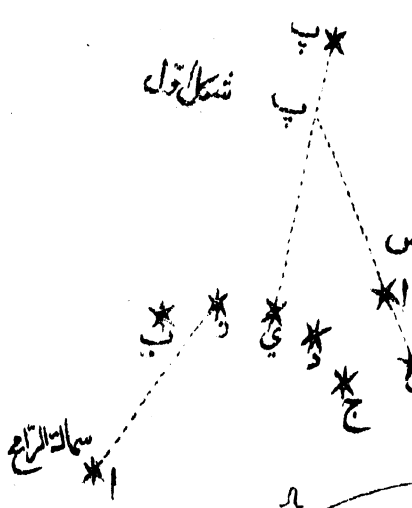 پ
شكل اوّل
پ
س
ا
ب
ز
ي
د
ج
سماك الرّامح
ا